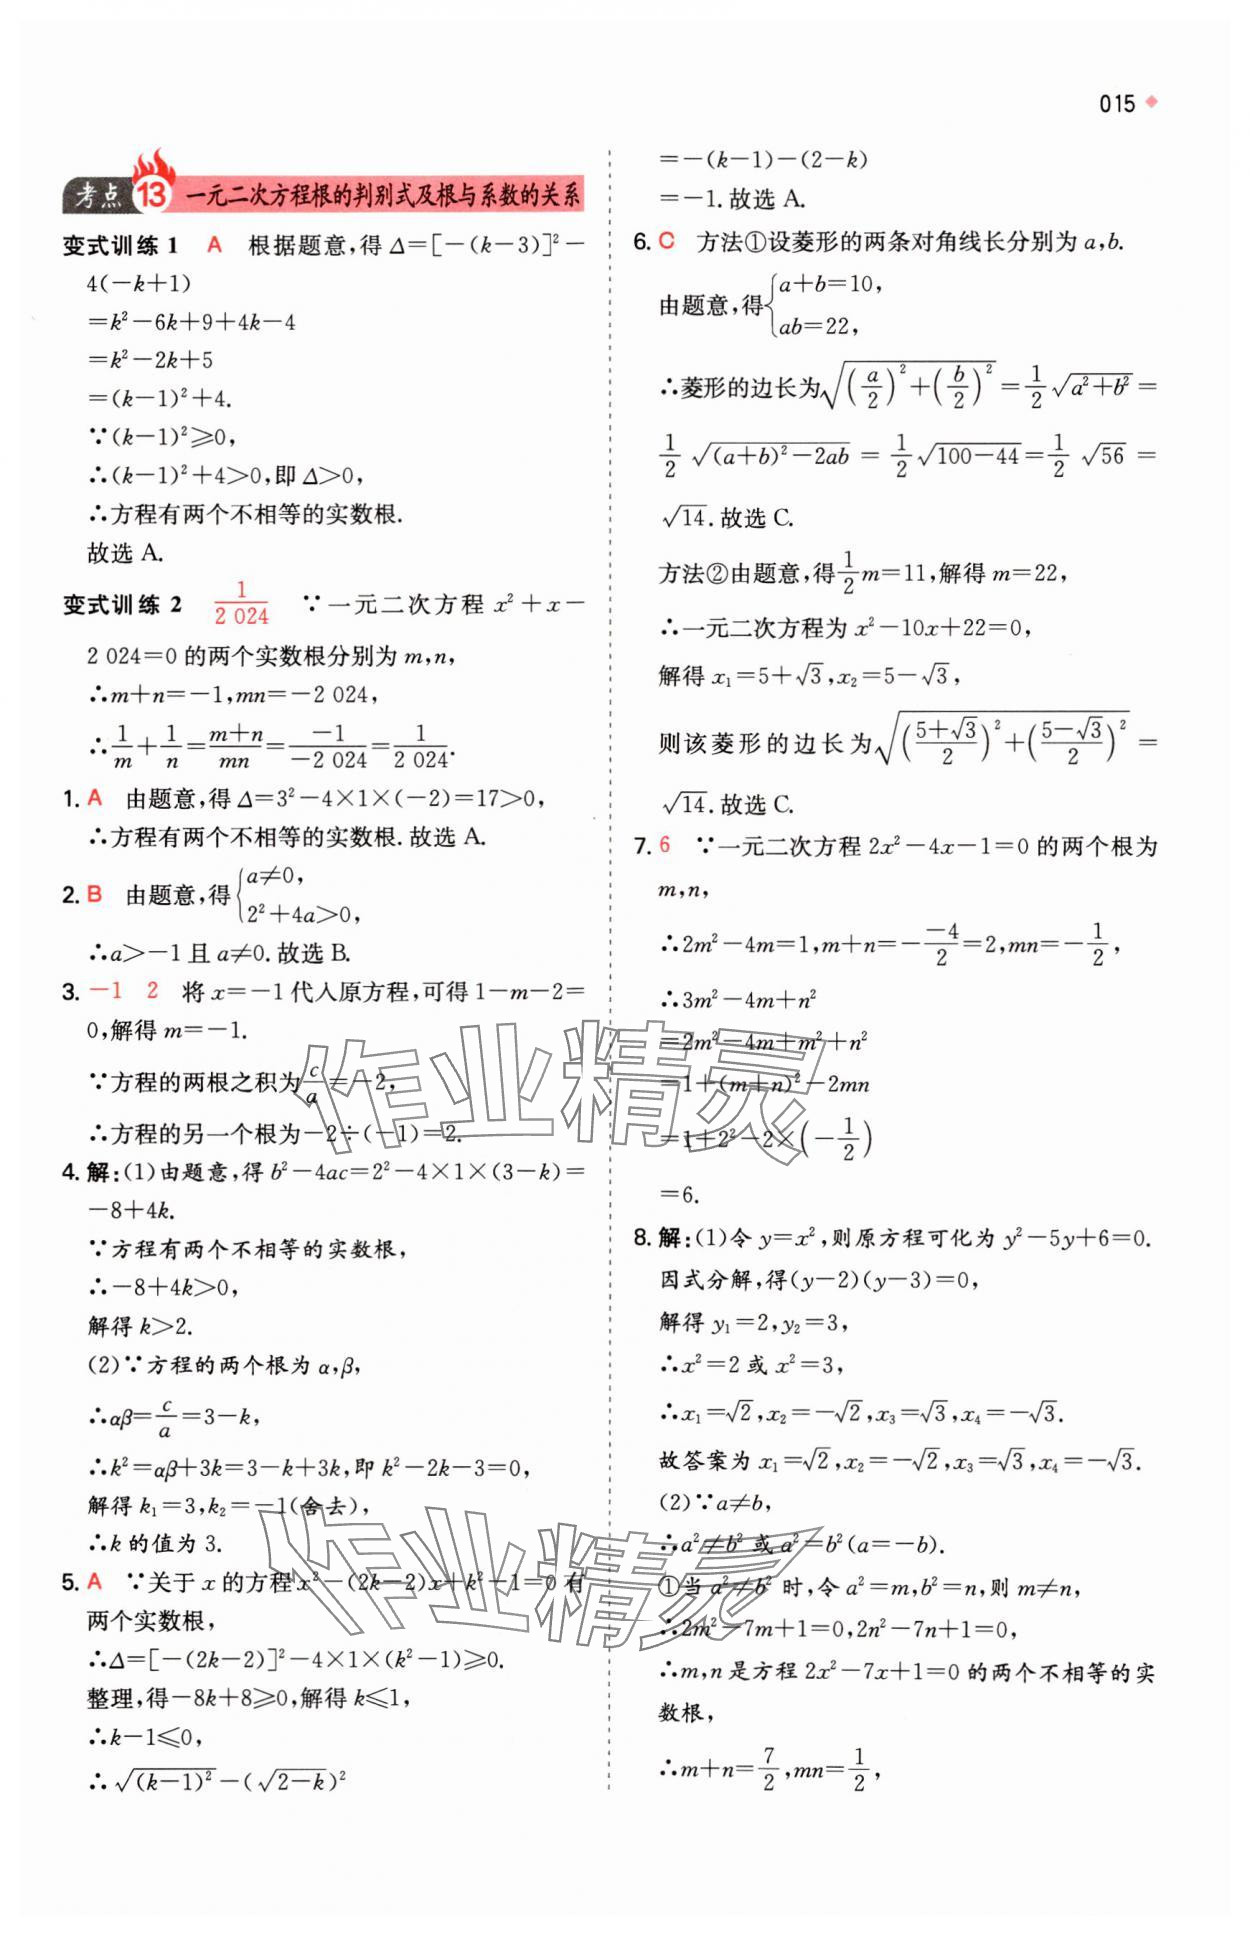 015
考点13 一元二次方程根的判别式及根与系数的关系
变式训练1 A 根据题意,得Δ=[-(k-3)]²-
4(-k+1)
=k²-6k+9+4k-4
=k²-2k+5
=(k-1)²+4.
∵(k-1)²≥0,
∴(k-1)²+4>0,即Δ>0,
∴方程有两个不相等的实数根.
故选A.
变式训练2 1/2 024 ∵一元二次方程x²+x-
2 024=0的两个实数根分别为m,n,
∴m+n=-1,mn=-2 024,
∴1/m+1/n=(m+n)/mn=-1/-2 024=1/2 024.
1. A 由题意,得Δ=3²-4×1×(-2)=17>0,
∴方程有两个不相等的实数根.故选A.
2. B 由题意,得{a≠0,
2²+4a>0,
∴a>-1且a≠0.故选B.
3. -1 2 将x=-1代入原方程,可得1-m-2=
0,解得m=-1.
∵方程的两根之积为c/a=-2,
∴方程的另一个根为-2÷(-1)=2.
4. 解:(1)由题意,得b²-4ac=2²-4×1×(3-k)=
-8+4k.
∵方程有两个不相等的实数根,
∴-8+4k>0,
解得k>2.
(2)∵方程的两个根为α,β,
∴αβ=c/a=3-k,
∴k²=αβ+3k=3-k+3k,即k²-2k-3=0,
解得k₁=3,k₂=-1(舍去),
∴k的值为3.
5. A ∵关于x的方程x²-(2k-2)x+k²-1=0有
两个实数根,
∴Δ=[-(2k-2)]²-4×1×(k²-1)≥0.
整理,得-8k+8≥0,解得k≤1,
∴k-1≤0,
∴√(k-1)²-(√2-k)²
=-(k-1)-(2-k)
=-1.故选A.
6. C 方法①设菱形的两条对角线长分别为a,b.
由题意,得{a+b=10,
ab=22,
∴菱形的边长为√((a/2)²+(b/2)²)=1/2√(a²+b²)=
1/2√((a+b)²-2ab)=1/2√(100-44)=1/2√56=
√14.故选C.
方法②由题意,得1/2m=11,解得m=22,
∴一元二次方程为x²-10x+22=0,
解得x₁=5+√3,x₂=5-√3,
则该菱形的边长为√(((5+√3)/2)²+((5-√3)/2)²)=
√14.故选C.
7. 6 ∵一元二次方程2x²-4x-1=0的两个根为
m,n,
∴2m²-4m=1,m+n=--4/2=2,mn=-1/2,
∴3m²-4m+n²
=2m²-4m+m²+n²
=1+(m+n)²-2mn
=1+2²-2×(-1/2)
=6.
8. 解:(1)令y=x²,则原方程可化为y²-5y+6=0.
因式分解,得(y-2)(y-3)=0,
解得y₁=2,y₂=3,
∴x²=2或x²=3,
∴x₁=√2,x₂=-√2,x₃=√3,x₄=-√3.
故答案为x₁=√2,x₂=-√2,x₃=√3,x₄=-√3.
(2)∵a≠b,
∴a²≠b²或a²=b²(a=-b).
①当a²≠b²时,令a²=m,b²=n,则m≠n,
∴2m²-7m+1=0,2n²-7n+1=0,
∴m,n是方程2x²-7x+1=0的两个不相等的实
数根,
∴m+n=7/2,mn=1/2,
作业精灵
作业精灵